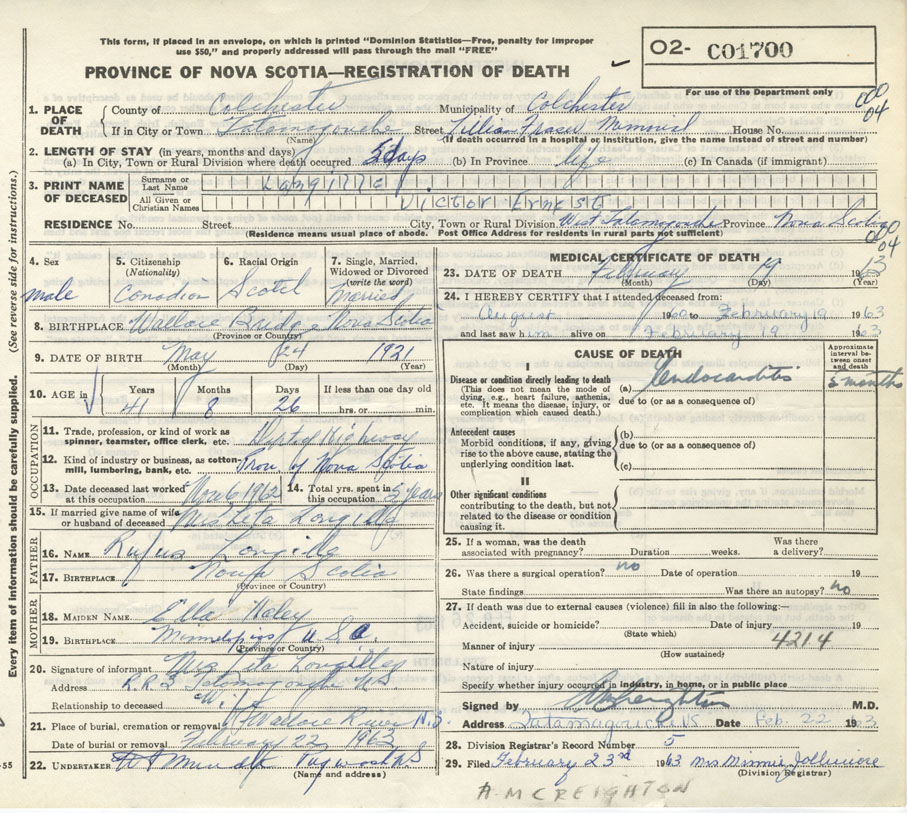 This form, if placed in an envelope, on which is printed "Dominion Statistics—Free, penalty for improper
use $50," and properly addressed will pass through the mail "FREE"
O2- C01700
PROVINCE OF NOVA SCOTIA—REGISTRATION OF DEATH
For use of the Department only
1. PLACE OF DEATH County of Colchester Municipality of Colchester 000
If in City or Town Tatamagouche Street Lillian Fraser Memorial House No. 04
(Name) (If death occurred in a hospital or institution, give the name instead of street and number)
2. LENGTH OF STAY (in years, months and days)
(a) In City, Town or Rural Division where death occurred 5 days (b) In Province life (c) In Canada (if immigrant)
3. PRINT NAME OF DECEASED Surname or Last Name Langille
All Given or Christian Names Victor Ernest
RESIDENCE No. Street City, Town or Rural Division West Tatamagouche Province Nova Scotia
(Residence means usual place of abode. Post Office Address for residents in rural parts not sufficient) 000
04
(See reverse side for instructions.)
Every item of information should be carefully supplied.
4. Sex 5. Citizenship (Nationality) 6. Racial Origin 7. Single, Married, Widowed or Divorced (write the word)
male Canadian Scotch Married
8. BIRTHPLACE Wallace Bridge Nova Scotia
(Province or Country)
9. DATE OF BIRTH May 24 1921
(Month) (Day) (Year)
10. AGE in Years Months Days If less than one day old
41 8 26 hrs. or min.
OCCUPATION
11. Trade, profession, or kind of work as
spinner, teamster, office clerk, etc. Dept of Highway
12. Kind of industry or business, as cotton-
mill, lumbering, bank, etc. Prov of Nova Scotia
13. Date deceased last worked at this occupation Nov 6 1962 14. Total yrs. spent in this occupation 5 years
15. If married give name of wife
or husband of deceased Mrs Leta Langille
FATHER
16. NAME Rufus Langille
17. BIRTHPLACE Nova Scotia
(Province or Country)
MOTHER
18. MAIDEN NAME "Ella" Haley
19. BIRTHPLACE U S A
(Province or Country)
20. Signature of informant Mrs Leta Langille
Address R.R 3 Tatamagouche N.S.
Relationship to deceased "Wife"
21. Place of burial, cremation or removal Wallace River N.S.
Date of burial or removal February 22, 1963
22. UNDERTAKER Pugwash N.S
(Name and address)
-55
MEDICAL CERTIFICATE OF DEATH
23. DATE OF DEATH February 19 1963
(Month) (Day) (Year)
24. I HEREBY CERTIFY that I attended deceased from:
August 1960 to February 19 1963
and last saw him alive on February 19 1963
CAUSE OF DEATH
Approximate interval between onset and death
I
Disease or condition directly leading to death
(This does not mean the mode of
dying, e.g., heart failure, asthenia,
etc. It means the disease, injury, or
complication which caused death.)
(a) Endocarditis 5 months
due to (or as a consequence of)
Antecedent causes
Morbid conditions, if any, giving
rise to the above cause, stating the
underlying condition last.
(b)
due to (or as a consequence of)
(c)
II
Other significant conditions
contributing to the death, but not
related to the disease or condition
causing it.
25. If a woman, was the death Was there
associated with pregnancy? Duration weeks. a delivery?
26. Was there a surgical operation? no Date of operation 19
State findings Was there an autopsy? no
27. If death was due to external causes (violence) fill in also the following:—
Accident, suicide or homicide? Date of injury 19
(State which)
Manner of injury 4214
(How sustained)
Nature of injury
Specify whether injury occurred in industry, in home, or in public place
Signed by AM Creighton M.D.
Address Tatamagouche NS Date Feb. 22 1963
28. Division Registrar's Record Number 5
29. Filed February 23rd 1963 Mrs Minnie Jollimore
(Division Registrar)
A M CREIGHTON